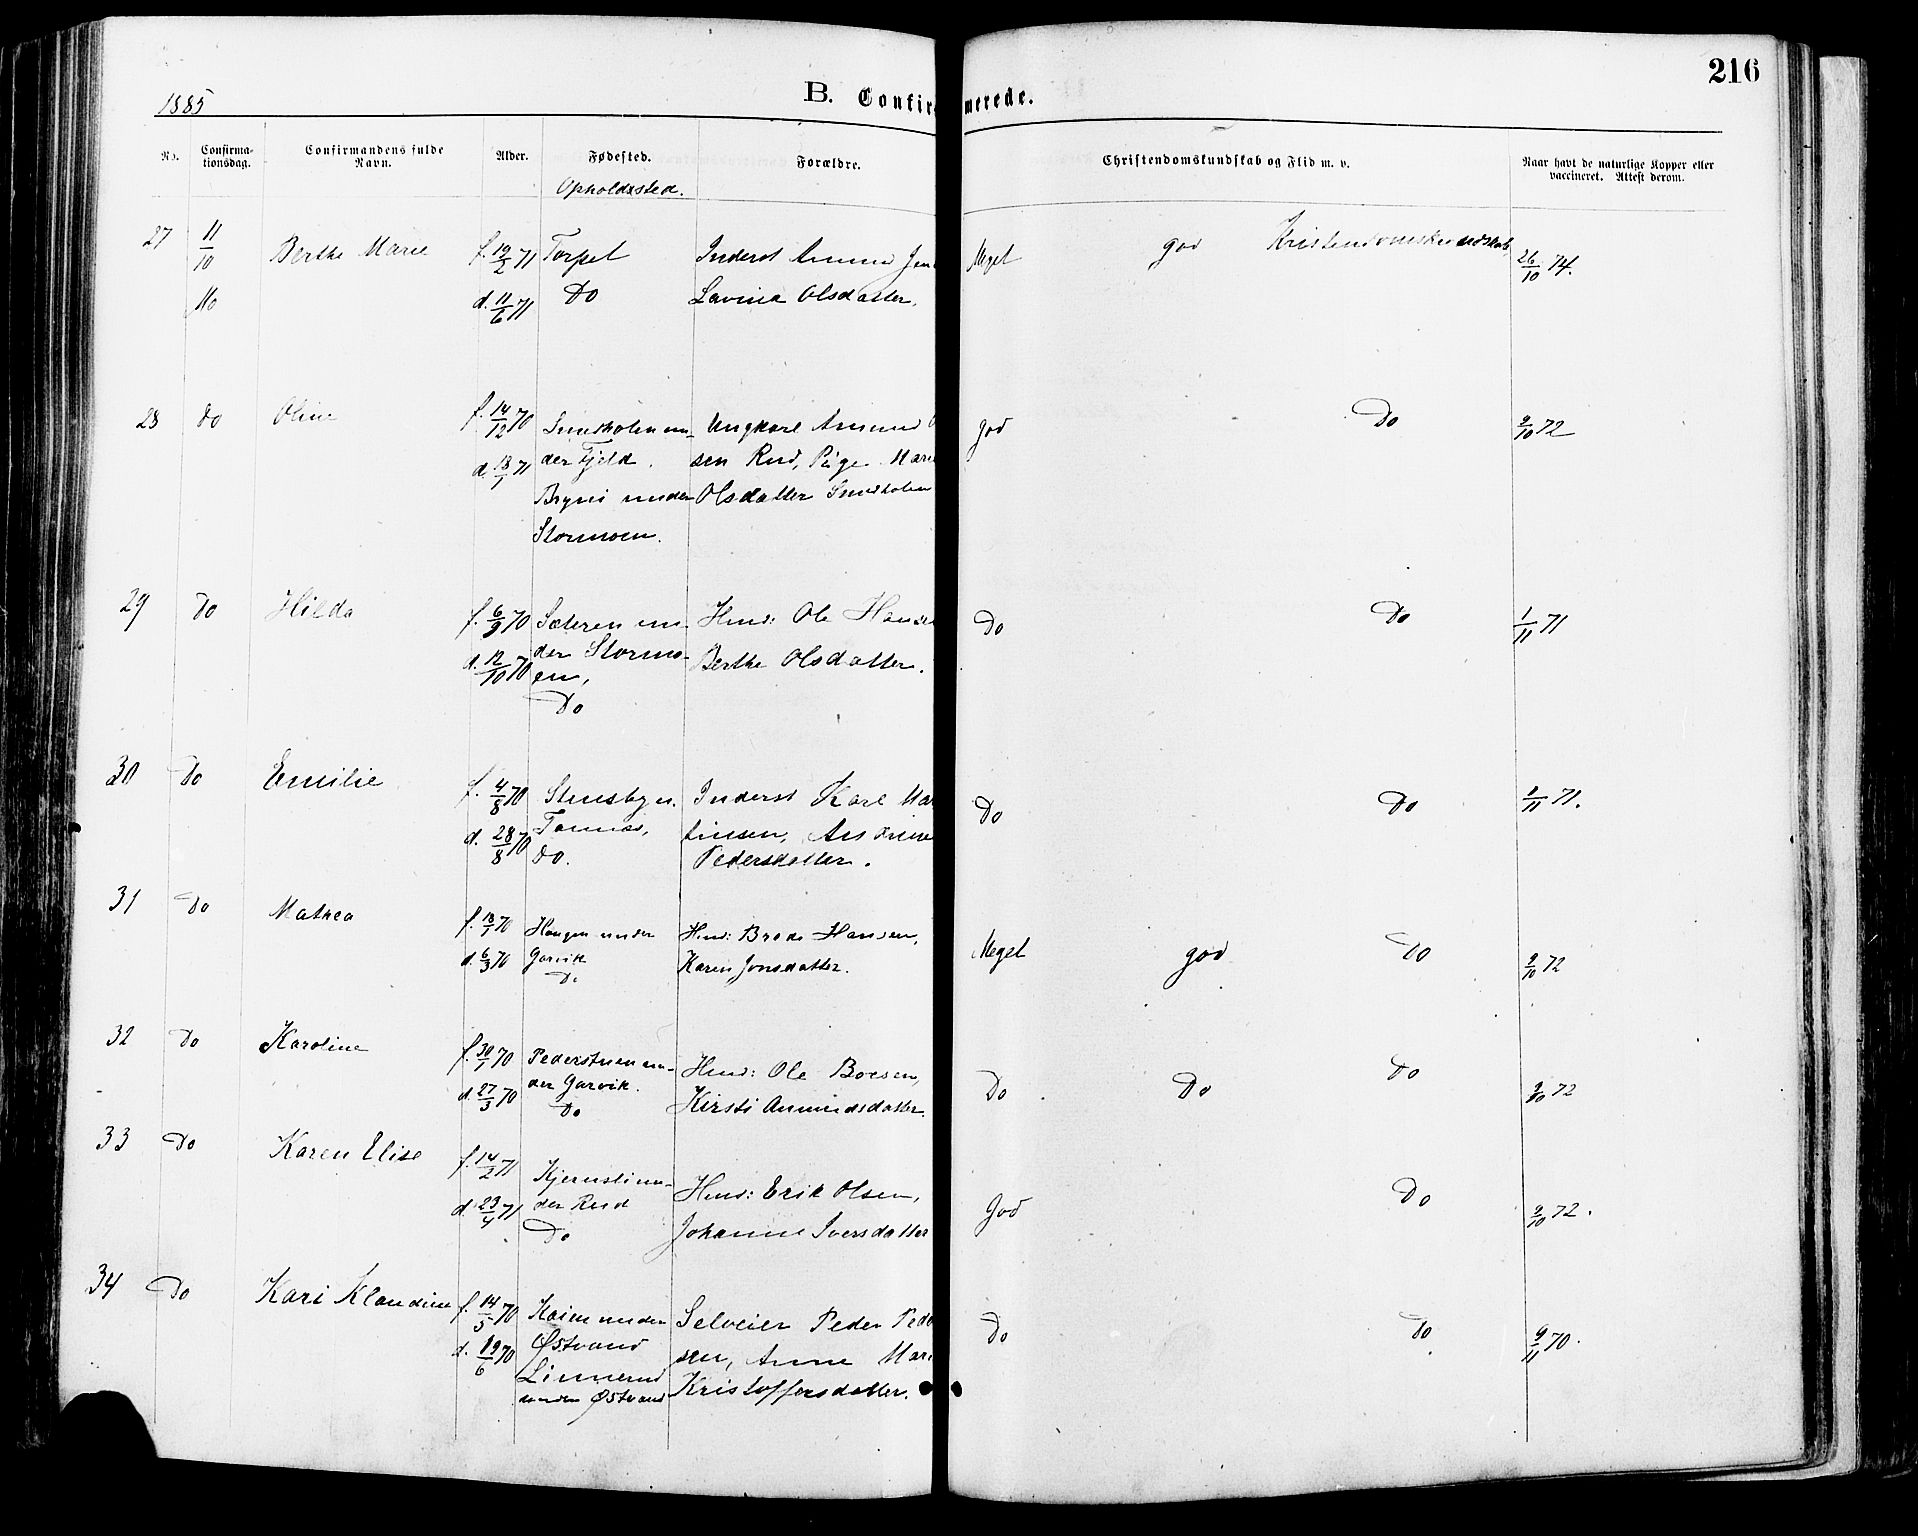 216
1885
B. Confirmerede.
No.
Confirma-
tionsdag.
Confirmandens fulde
Navn.
Alder.
Fødested.
Opholdssted.
Forældre.
Christendomskundskab og Flid m. v.
Naar havt de naturlige Kopper eller
vaccineret. Attest derom.
27 11/10 Berthe Marie f. 19/2 71 Torpet Inderst Amund Jen Meget god Kristendomskundskab, 26/10 74.
Mo d. 11/6 71 Do Lavina Olsdatter.
28 Do Oline f. 14/12 70 un- Ungkarl Amund O god Do 9/10 72
d. 13/1 71 der Fjeld. sen Rud, Pige Marie
under Olsdatter
Stormoen.
29 Do Hilda f. 6/9 70 Sæteren un- Husm: Ole Hanse Do Do 1/11 71
d. 12/10 70 der Stormo- Berthe Olsdatter.
en,
Do
30 Do Emilie f. 4/8 70 Stensbyn. Inderst Karl Mar Do Do 1/11 71.
d. 28/8 70 tinsen, Andrine
Do. Pedersdatter.
31 Do Mathea f. 18/1 70 Haugen under Husm: Brede Hansen, Meget god Do 9/10 72
d. 6/3 70 Garvik Karen Jonsdatter.
Do
32 Do Karoline f. 30/1 70 Pederstuen un- Husm: Ole Boesen, Do Do Do 9/10 72
d. 27/3 70 der Garvik. Kirsti Amundsdatter.
Do
33 Do Karen Elise f. 14/2 71 Kjernsli un- Husm: Erik Olsen, God Do 9/10 72.
d. 23/4 71 der Rud Johanne Iversdatter
Do
34 Do Kari Klaudine f. 14/5 70 under Selveier Peder Pede Do Do 9/11 70.
d. 19/6 70 Østvand sen, Anne Mari
Linnerud Kristoffersdatter.
under Østvand